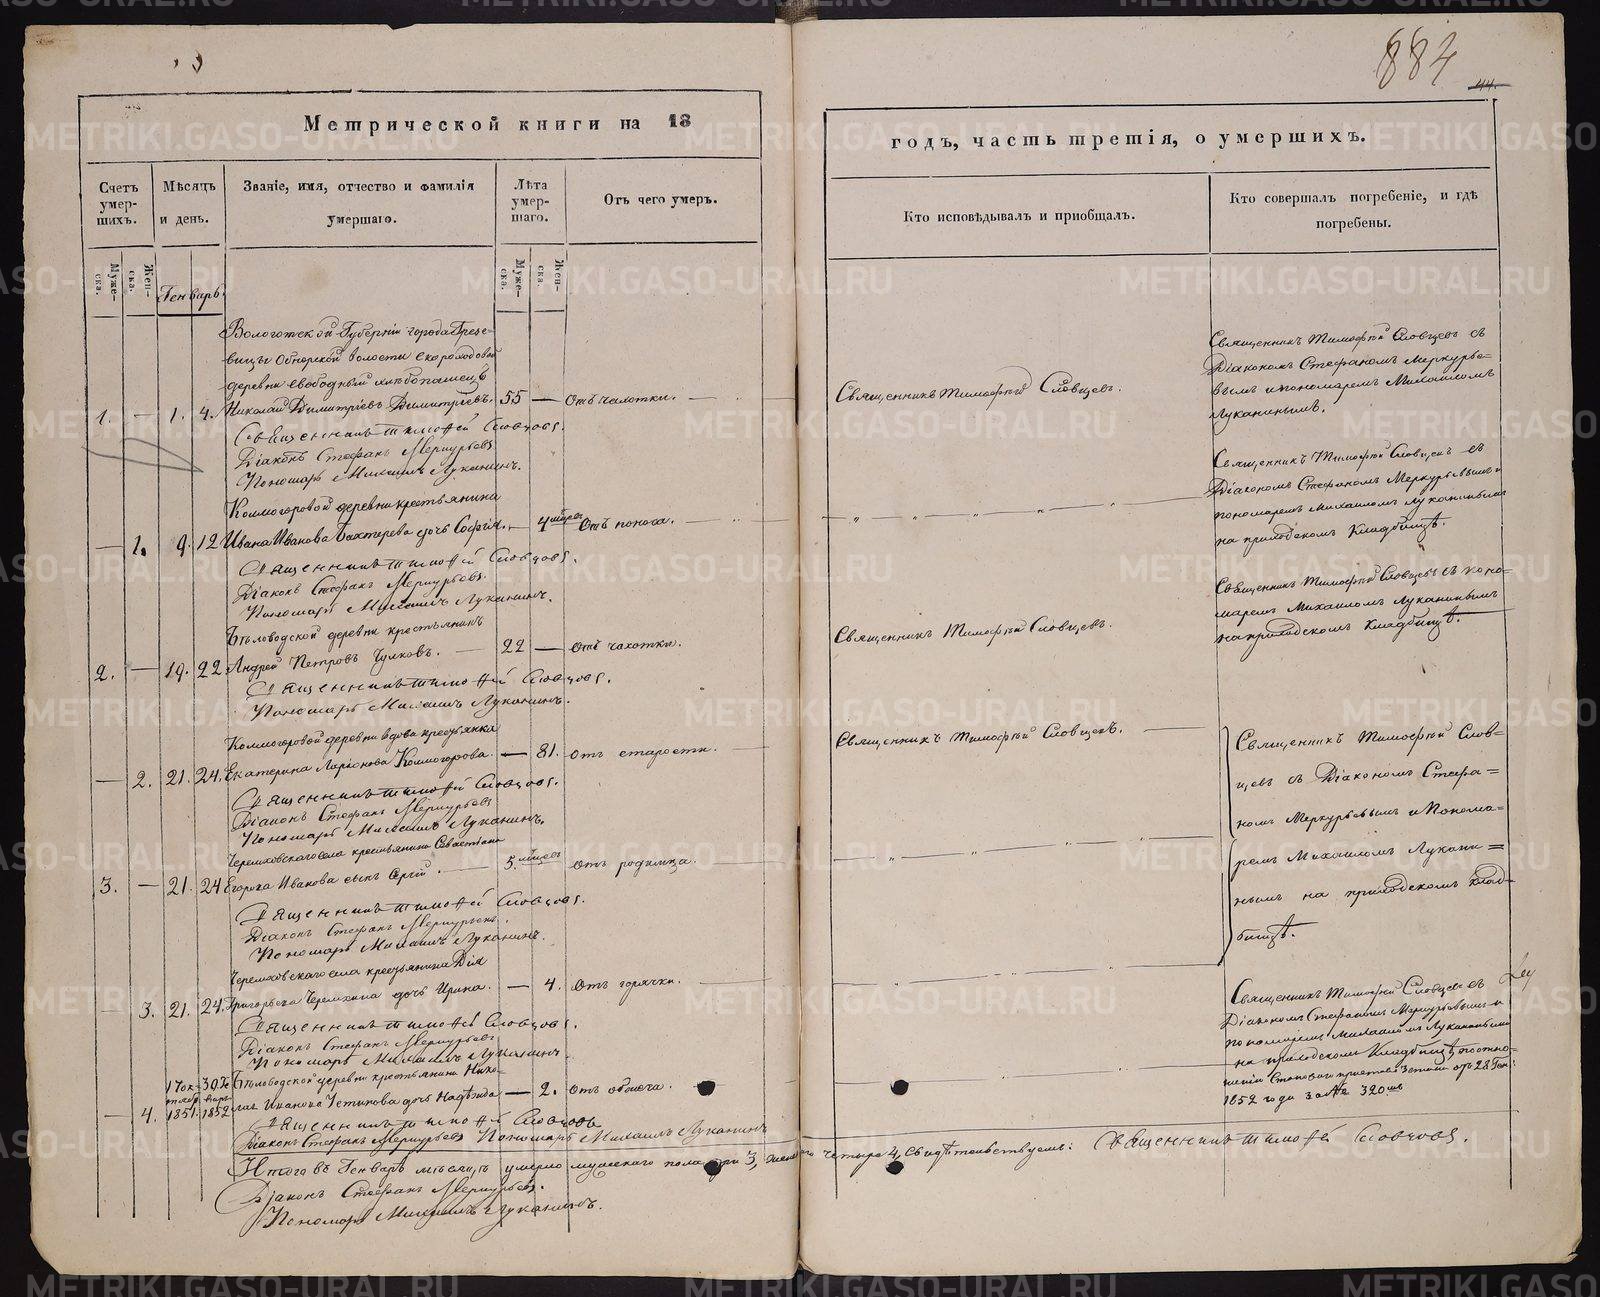 884
44.
Метрической книги на 18
годъ, часть третія, о умершихъ.
Счетъ умер-шихъ.
Мѣсяцъ и день.
Званіе, имя, отчество и фамилія умершаго.
Лѣта умер-шаго.
Отъ чего умеръ.
Кто исповѣдывалъ и пріобщалъ.
Кто совершалъ погребеніе, и гдѣ погребены.
Муже-ска.
Жен-ска.
Муже-ска.
Жен-ска.
Генварь
Вологотской Губерніи города Грязо-
вицы Обнорской волости Скороходовой
деревни свободный хлѣбопашецъ
1. — 1. 4. Николай Димитріевъ Димитріевъ. 55 — Отъ чахотки.
Священникъ Тимофей Словцовъ.
Діаконъ Стефанъ Меркурьевъ
Пономарь Михаилъ Луканинъ.
Священникъ Тимофей Словцевъ.
Священникъ Тимофей Словцевъ съ
Діакономъ Стефаномъ Меркурье-
вымъ и пономаремъ Михаиломъ
Луканинымъ.
Колмогоровой деревни крестьянина
— 1. 9. 12 Ивана Иванова Бахтерева дочь Софія. — 4 мѣсяц Отъ поноса.
Священникъ Тимофей Словцовъ.
Діаконъ Стефанъ Меркурьевъ.
Пономарь Михаилъ Луканинъ.
Священникъ Тимофей Словцевъ съ
Діакономъ Стефаномъ Меркурьевымъ и
пономаремъ Михаиломъ Луканинымъ
на приходскомъ Кладбищѣ.
Бѣловодской деревни крестьянинъ
2. — 19. 22 Андрей Петровъ Чулковъ. — 22 — Отъ чахотки.
Священникъ Тимофей Словцовъ.
Пономарь Михаилъ Луканинъ.
Священникъ Тимофей Словцевъ.
Священникъ Тимофей Словцевъ съ поно-
маремъ Михаиломъ Луканинымъ
на приходскомъ Кладбищѣ.
Колмогоровой деревни вдова крестьянка
— 2. 21. 24. Екатерина Ларіонова Колмогорова. — 81. Отъ старости.
Священникъ Тимофей Словцовъ.
Діаконъ Стефанъ Меркурьевъ
Пономарь Михаилъ Луканинъ.
Священникъ Тимофей Словцевъ.
Священникъ Тимофей Слов-
цевъ съ Діакономъ Стефа-
номъ Меркурьевымъ и Понома-
ремъ Михаиломъ Лукани-
нымъ на приходскомъ Клад-
бищѣ.
Черемховскаго села крестьянина Севастіана
3. — 21. 24 Егорова Иванова сынъ Сергій. — 5. мѣсяцъ Отъ родимца.
Священникъ Тимофей Словцовъ.
Діаконъ Стефанъ Меркурьевъ.
Пономарь Михаилъ Луканинъ.
Черемховскаго села крестьянина
— 3. 21. 24. Григорьева Черемхина дочь Ирина. — 4. Отъ горячки.
Священникъ Тимофей Словцовъ.
Діаконъ Стефанъ Меркурьевъ
Пономарь Михаилъ Луканинъ
Священникъ Тимофей Словцевъ съ
Діакономъ Стефаномъ Меркурьевымъ и
пономаремъ Михаиломъ Луканинымъ
на приходскомъ Кладбищѣ по отно-
шенію Становаго пристава отъ 28 Ген:
1852 года за № 320мъ
Бѣловодской деревни крестьянина Нико-
— 4. 1851. 1852 лая Иванова дочь Надѣжда — 2. Отъ
Священникъ Тимофей Словцовъ
Діаконъ Стефанъ Меркурьевъ Пономарь Михаилъ Луканинъ
Итого въ Генварѣ мѣсяцѣ умерло мужескаго пола три 3, четыре 4, свидѣтельствуемъ: Священникъ Тимофей Словцовъ.
Діаконъ Стефанъ Меркурьевъ.
Пономарь Михаилъ Луканинъ.